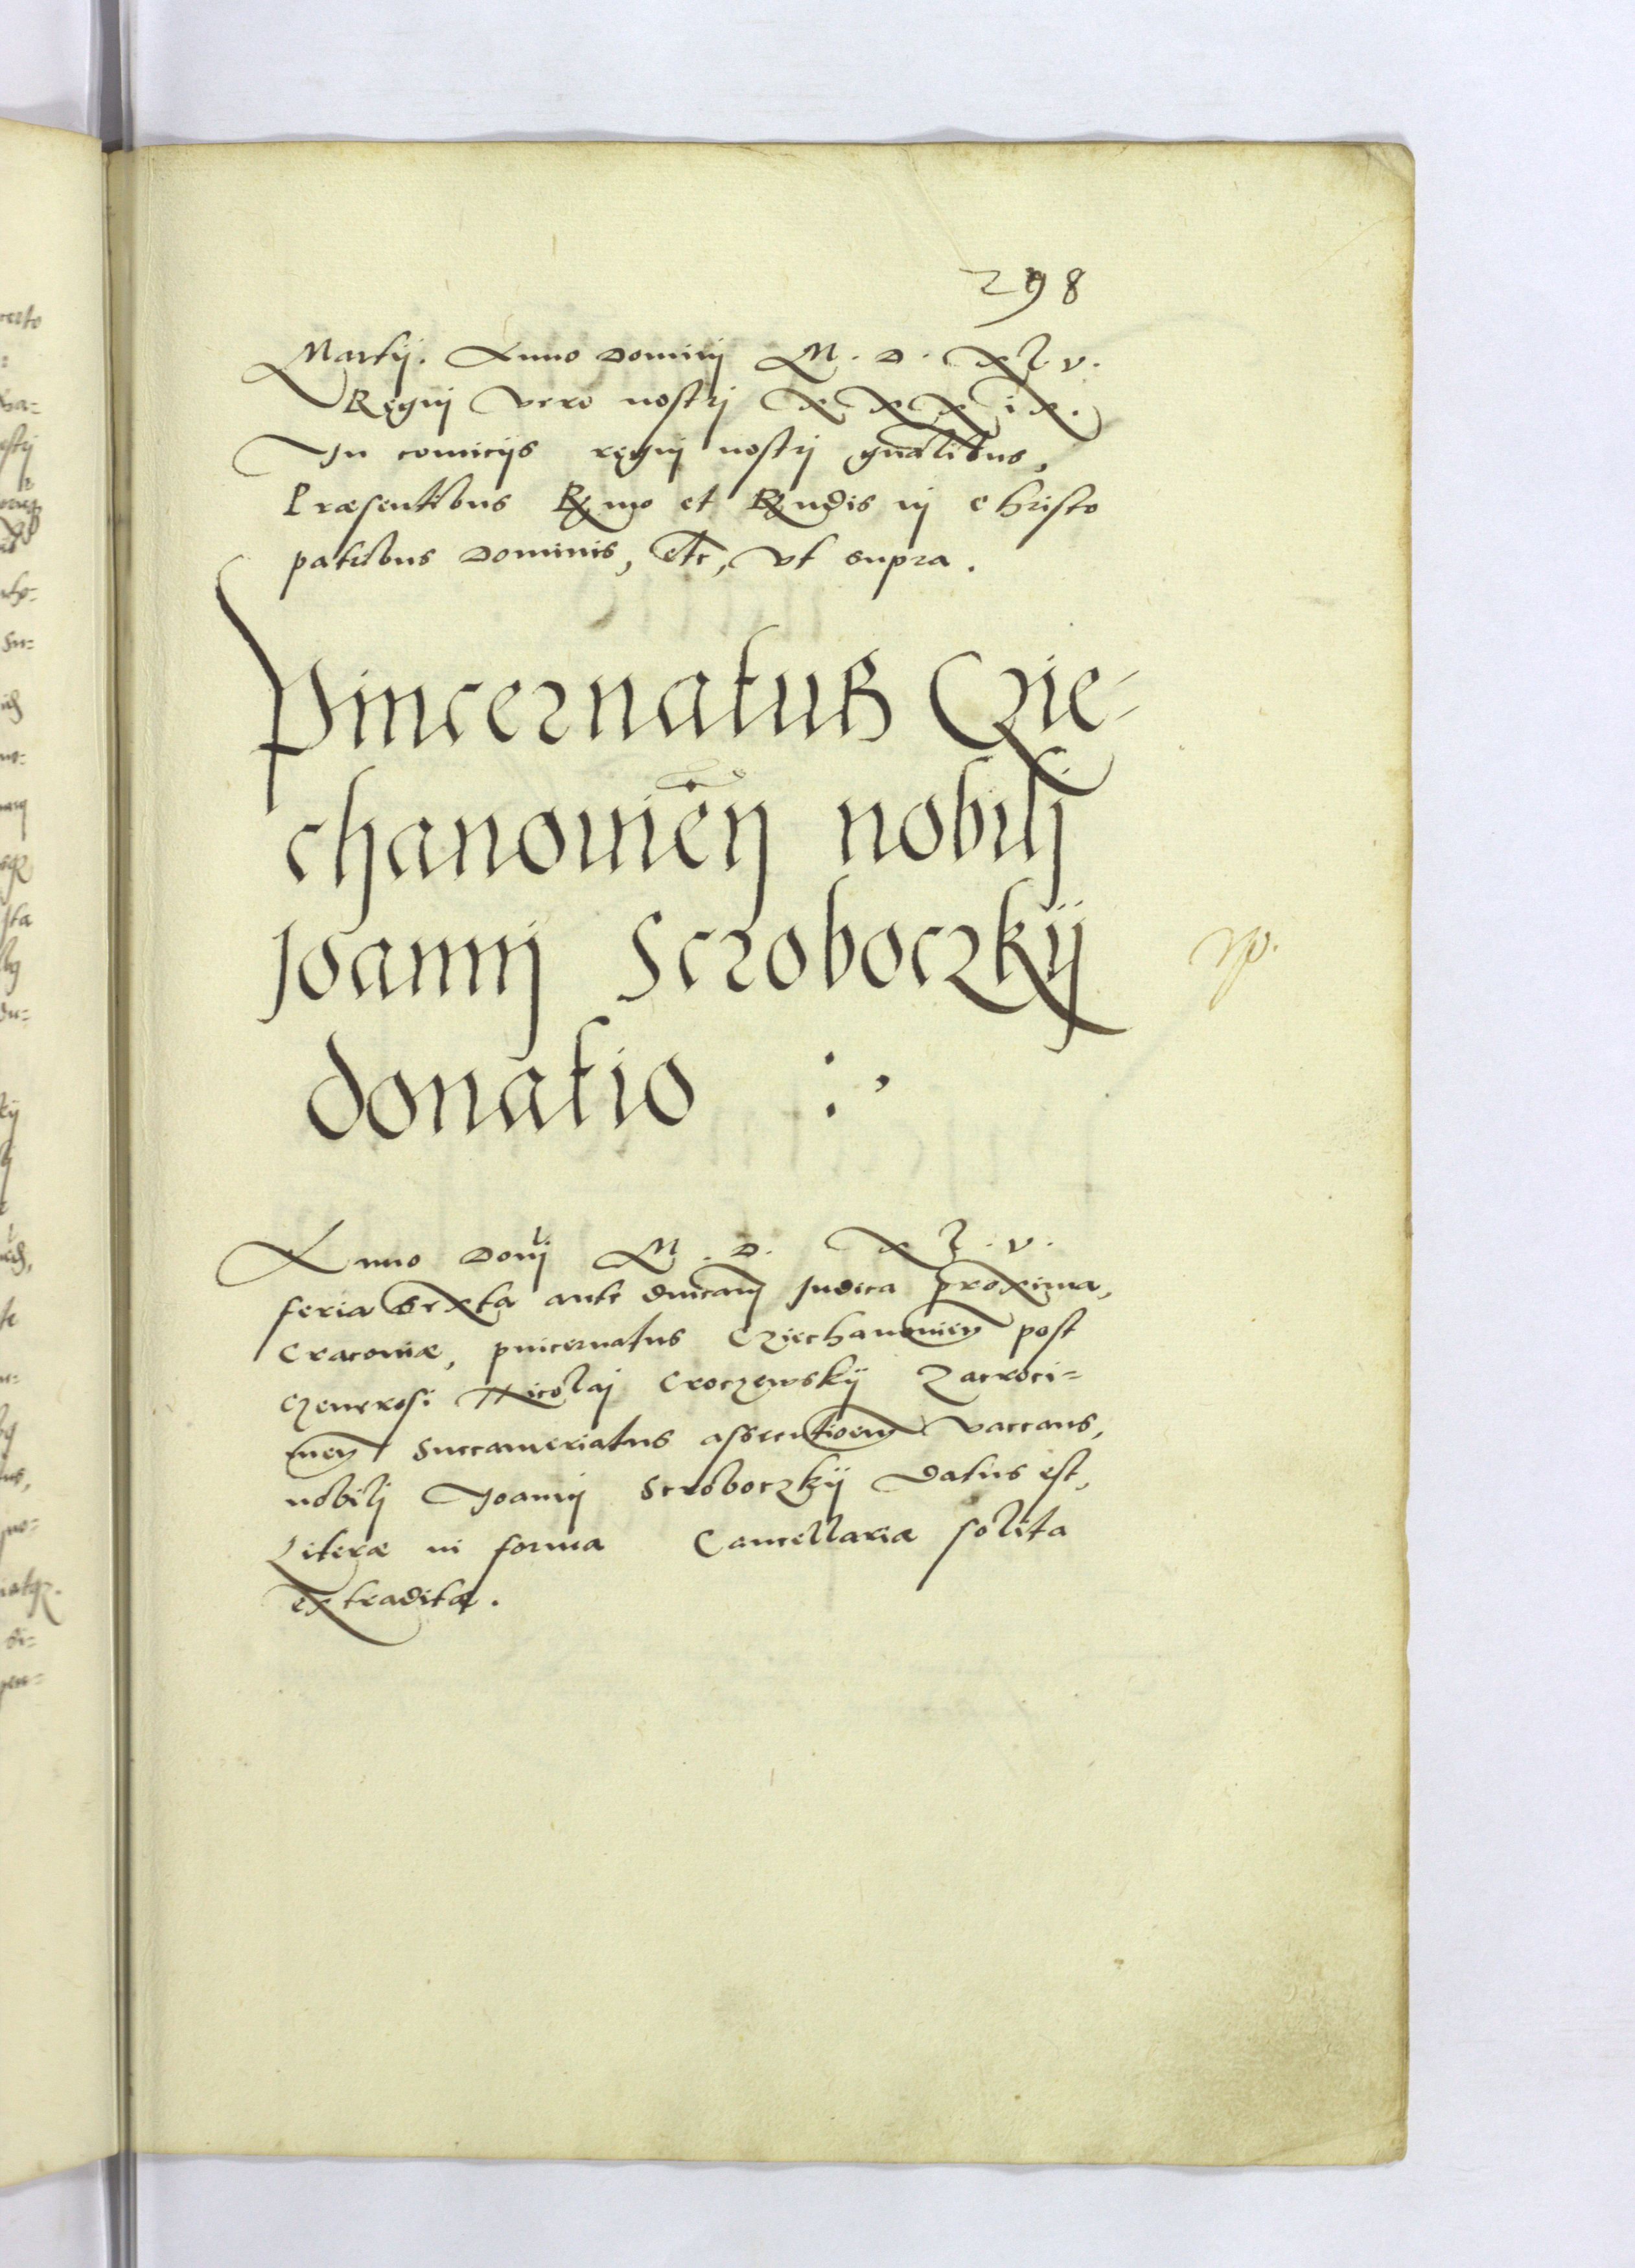 298
Martij. Anno Dominj M. D. XL. V.
Regnj vero nostrj XXXIX.
In comicijs regnj nostrj gnalibus,
Præsentibus Rmo et Rndis in Christo
patribus Dominis, etc, vt supra.
Pincernatus Czie-
chanovien nobilj
Joannj Scroboczkij
donatio
Anno Domj M. D. XL. V.
feria sexta ante dnicam Judica proxima,
Cracoviæ, pincernatus Cziechanovien post
Generosi Nicolaj Croczewskij Zacroci-
men Succameriatus assecutionem vaccans,
nobilj Joannj Scroboczkij datus est,
Literæ in forma Cancellariæ solita
extraditæ.